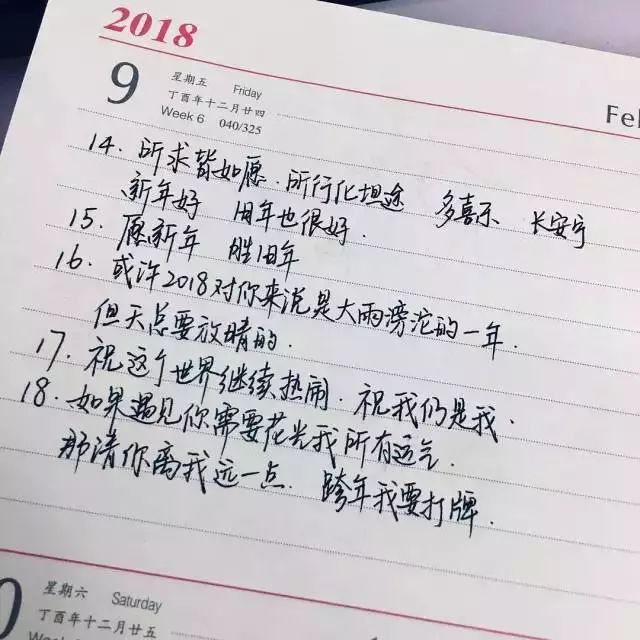 2018
9
星期五 Friday
丁酉年十二月廿四
Week 6 040/325
Feb
14. 所求皆如愿.所行化坦途 多喜乐 长安宁
新年好 旧年也很好.
15. 愿新年 胜旧年
16. 或许2018对你来说是大雨滂沱的一年.
但天总要放晴的.
17. 祝这个世界继续热闹.祝我仍是我.
18. 如果遇见你需要花光我所有运气.
那请你离我远一点. 跨年我要打牌.
星期六 Saturday
丁酉年十二月廿五